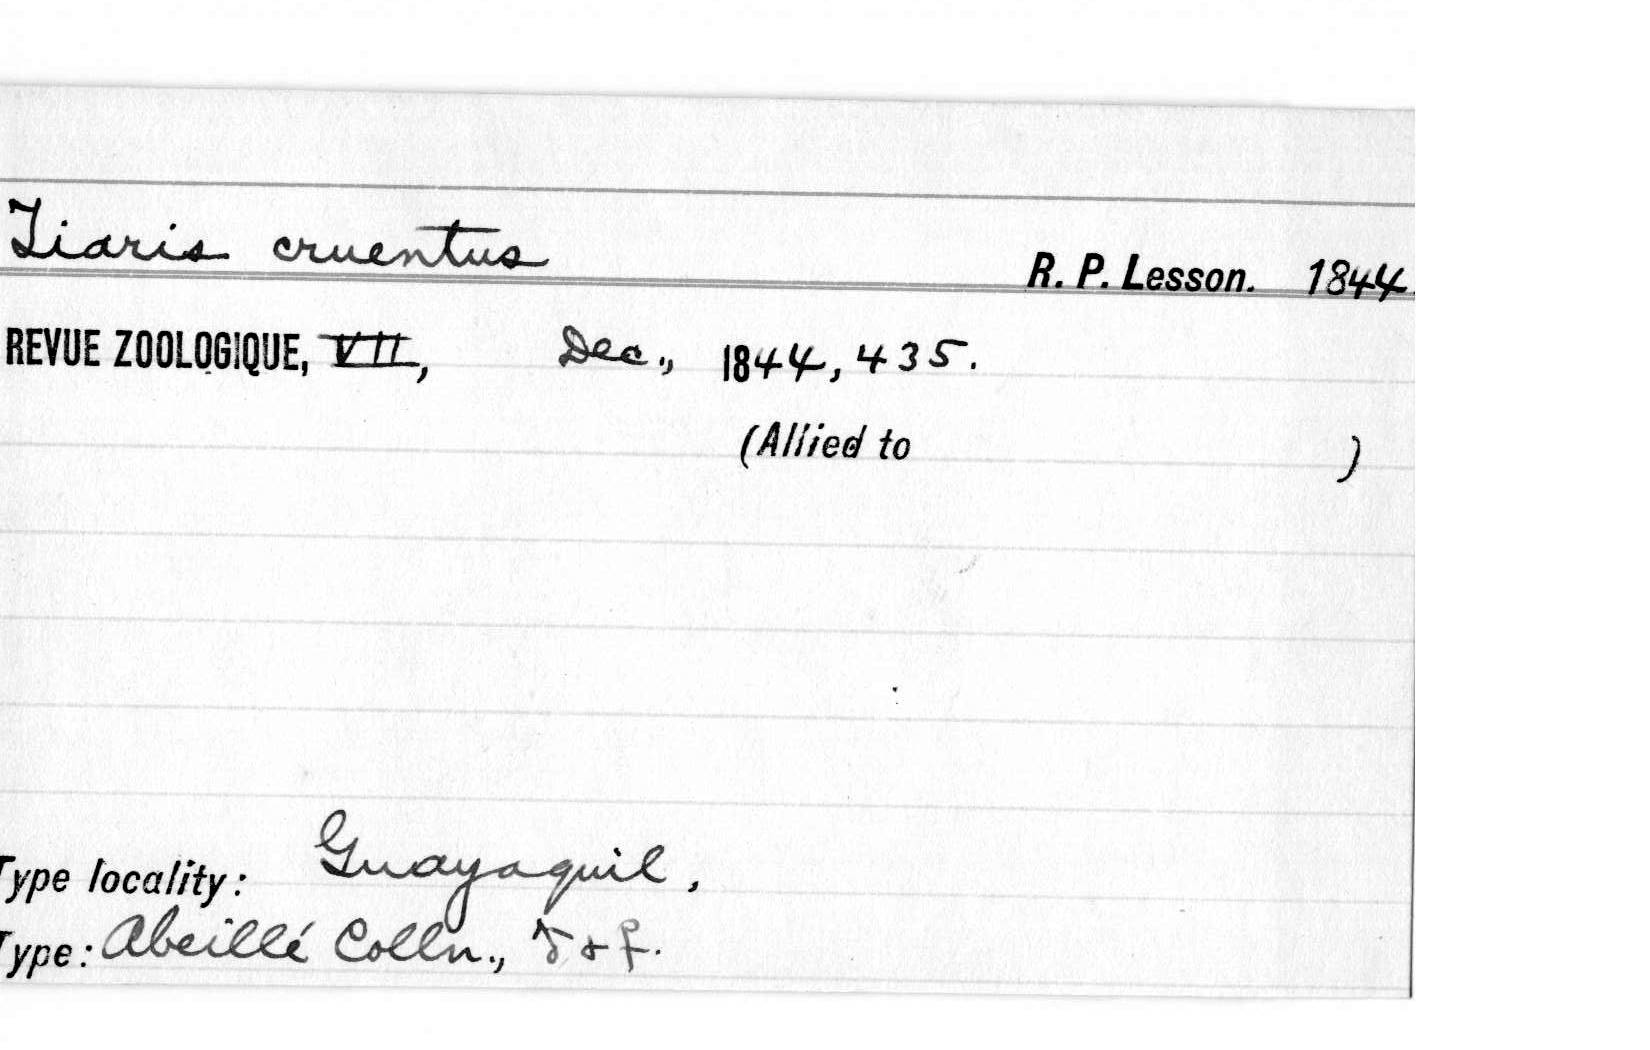 Tiaris cruentus
R. P. Lesson. 1844.
REVUE ZOOLOGIQUE, VII, Dec., 1844, 435.
(Allied to )
Type locality: Guayaquil,
Type: Abeillé Colln., ♂ + ♀.